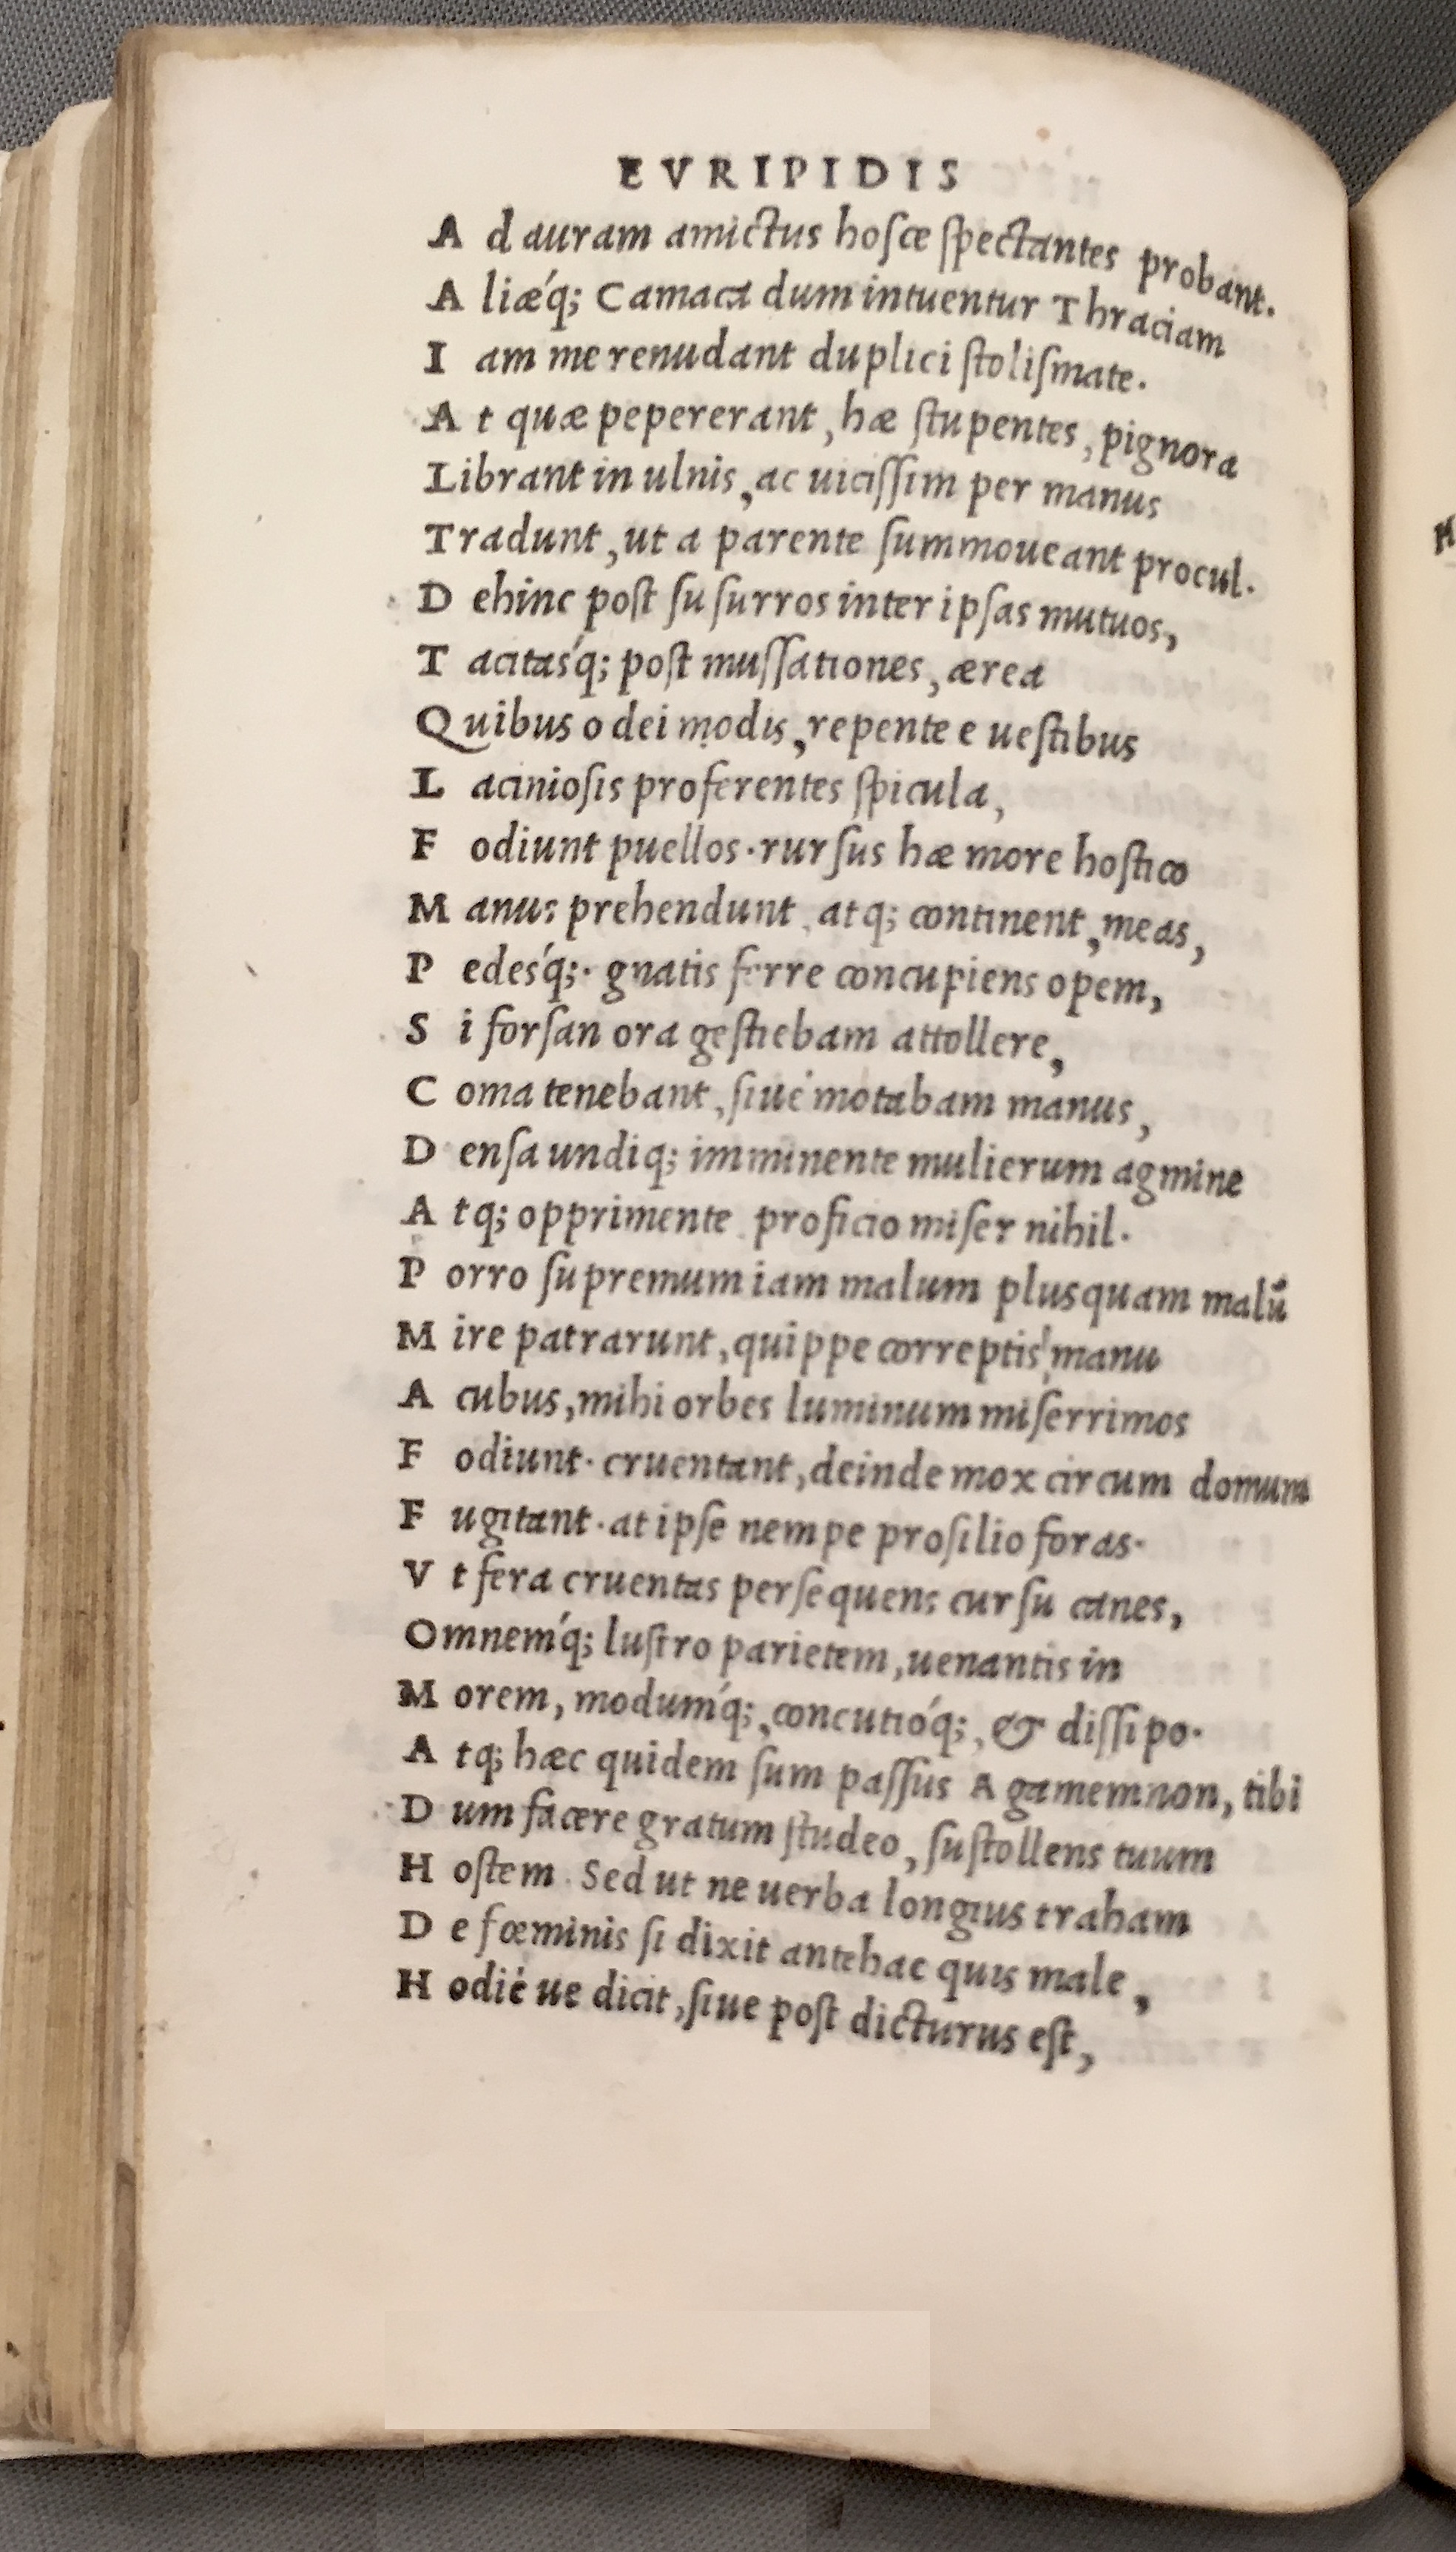 EVRIPIDIS
A d auram amictus hosce spectantes probant.
A liæq́; Camaca dum intuentur Thraciam
I am me renudant duplici stolismate.
A t quæ pepererant, hæ stupentes, pignora
Librant in ulnis, ac uicissim per manus
Tradunt, ut a parente summoueant procul.
D ehinc post susurros inter ipsas mutuos,
T acitasq́; post mussationes, ærea
Quibus o dei modis, repente e uestibus
L aciniosis proferentes spicula,
F odiunt puellos. rursus hæ more hostico
M anus prehendunt, atq; continent, meas,
P edesq́;. gnatis ferre concupiens opem,
S i forsan ora gestiebam attollere,
C oma tenebant, siue motabam manus,
D ensa undiq; imminente mulierum agmine
A tq; opprimente proficio miser nihil.
P orro supremum iam malum plusquam malū
M ire patrarunt, quippe correptis manu
A cubus, mihi orbes luminum miserrimos
F odiunt. cruentant, deinde mox circum domum
F ugitant. at ipse nempe prosilio foras.
V t fera cruentas persequens cursu canes,
Omnemq́; lustro parietem, uenantis in
M orem, modumq́;, concutioq́;, & dissipo.
A tq; hæc quidem sum passus Agamemnon, tibi
D um facere gratum studeo, sustollens tuum
H ostem. Sed ut ne uerba longius traham
D e fœminis si dixit antehac quis male,
H odie ue dicit, siue post dicturus est,
H